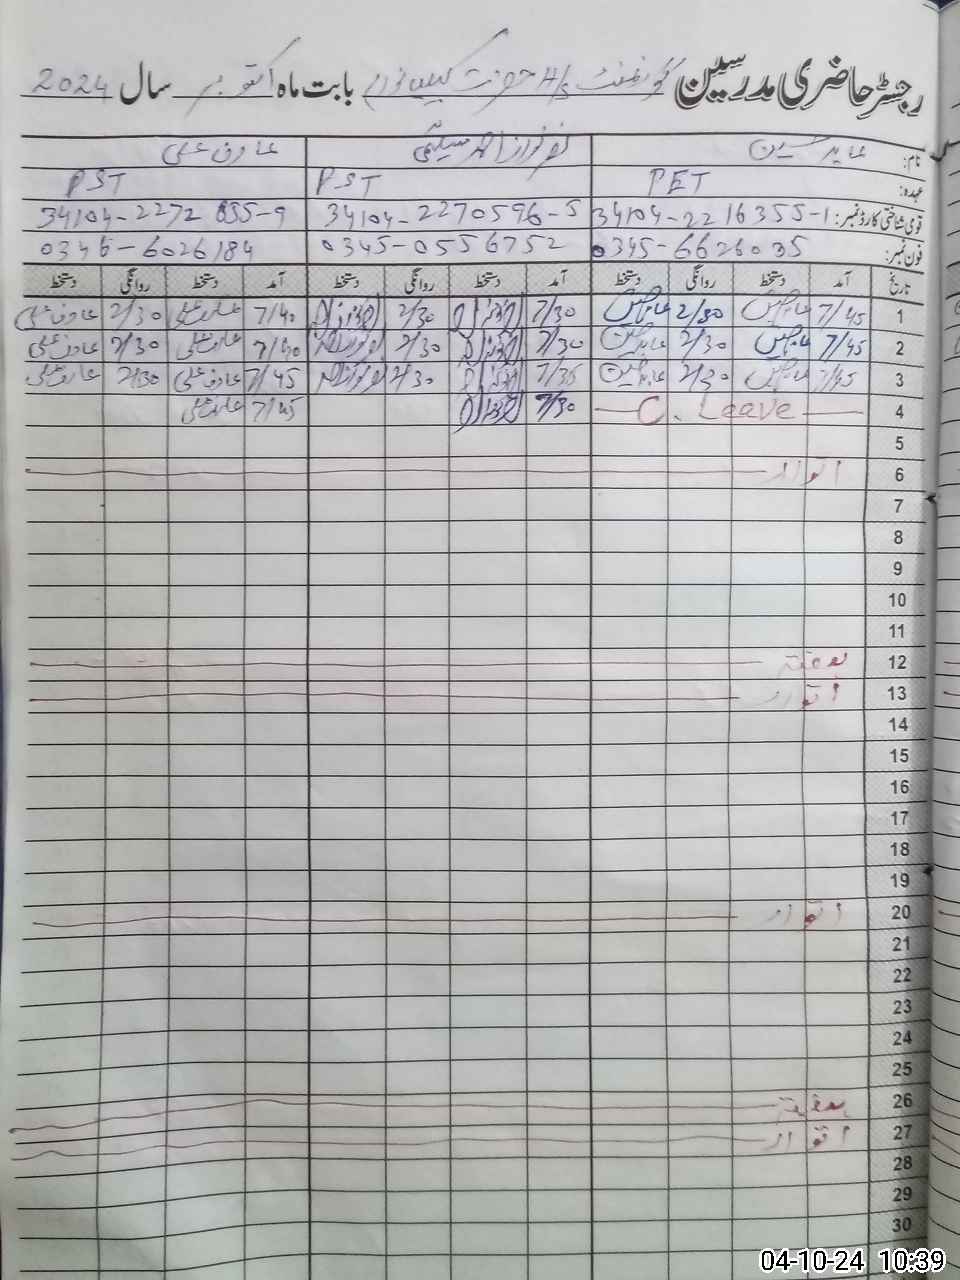 رجسٹر حاضری مدرسین گورنمنٹ H/S حضرت بابت ماہ اکتوبر سال 2024
نام: عابد حسین عارف علی
عہدہ: PET PST PST
قومی شناختی کارڈ نمبر: 34104-2216355-1 34104-2270596-5 34104-2272855-9
فون نمبر: 0345-6626035 0345-0556752 0346-6026184
تاریخ آمد دستخط روانگی دستخط آمد دستخط روانگی دستخط آمد دستخط روانگی دستخط
1 7/45 عابد حسین 2/30 عابد حسین 7/30 2/30 7/40 عارف علی 2/30 عارف علی
2 7/45 عابد حسین 2/30 عابد حسین 7/30 2/30 7/40 عارف علی 2/30 عارف علی
3 7/45 عابد حسین 2/30 عابد حسین 7/35 2/30 7/45 عارف علی 2/30 عارف علی
4 C. Leave 7/30 7/45 عارف علی
5
6 اتوار
7
8
9
10
11
12 ہفتہ
13 اتوار
14
15
16
17
18
19
20 اتوار
21
22
23
24
25
26 ہفتہ
27 اتوار
28
29
30
04-10-24 10:39